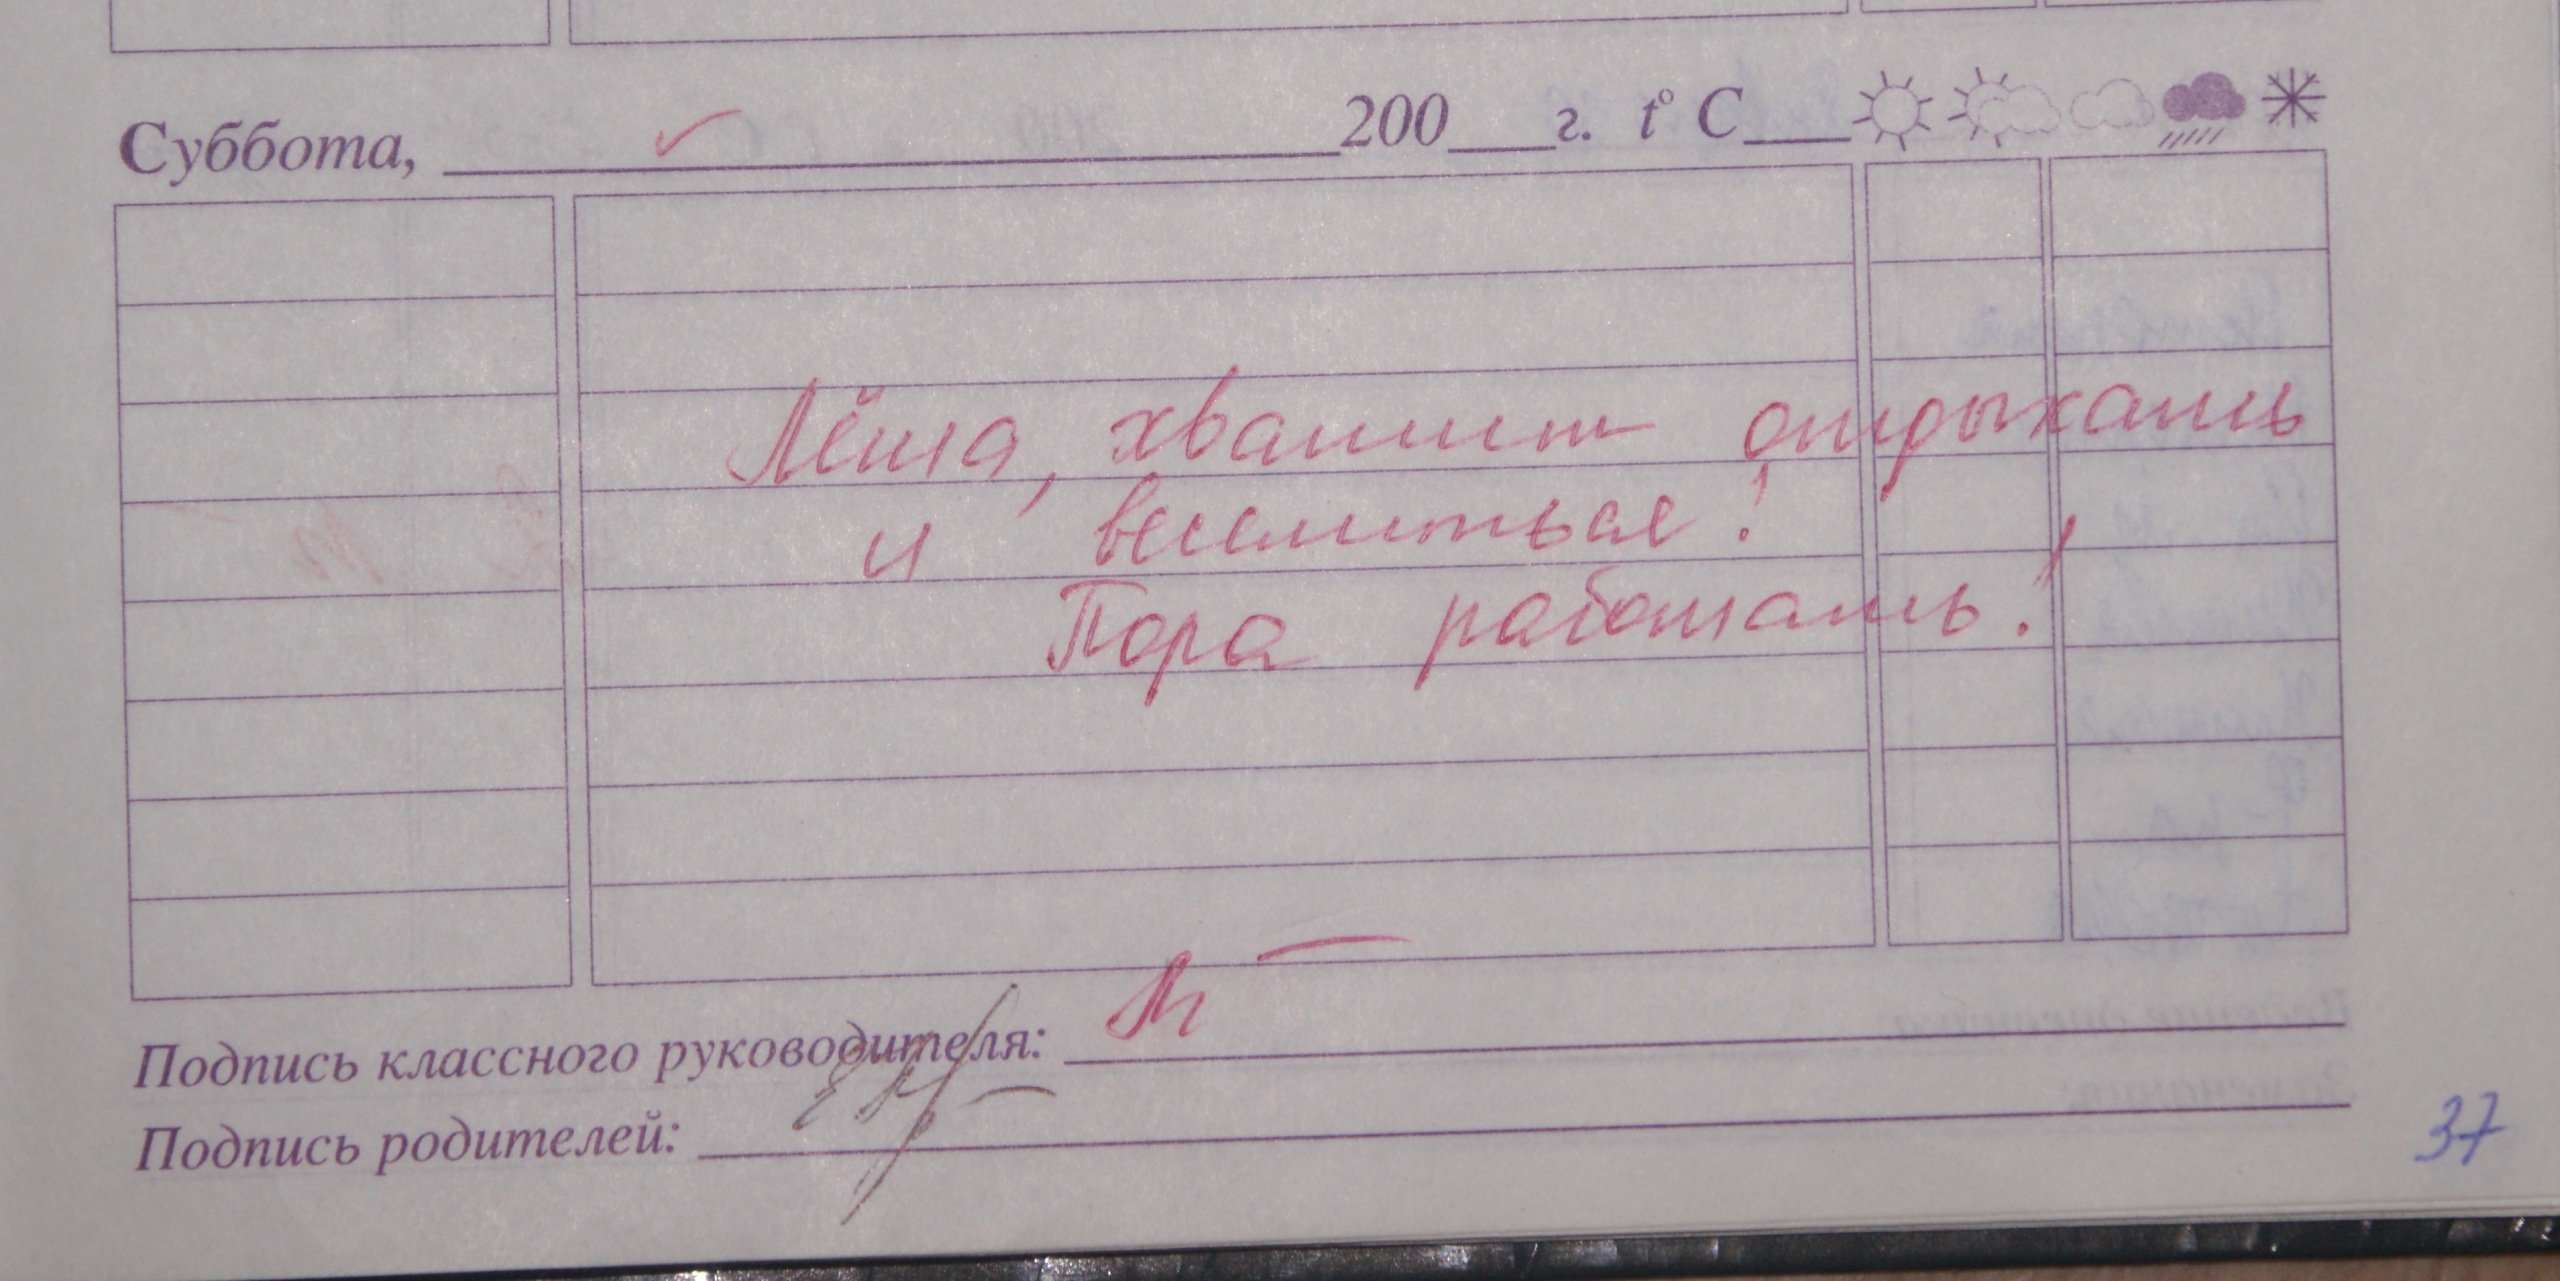 Суббота, 200 г. t° C
Лёша, хватит отдыхать
и веселиться!
Пора работать!
Подпись классного руководителя:
Подпись родителей:
37